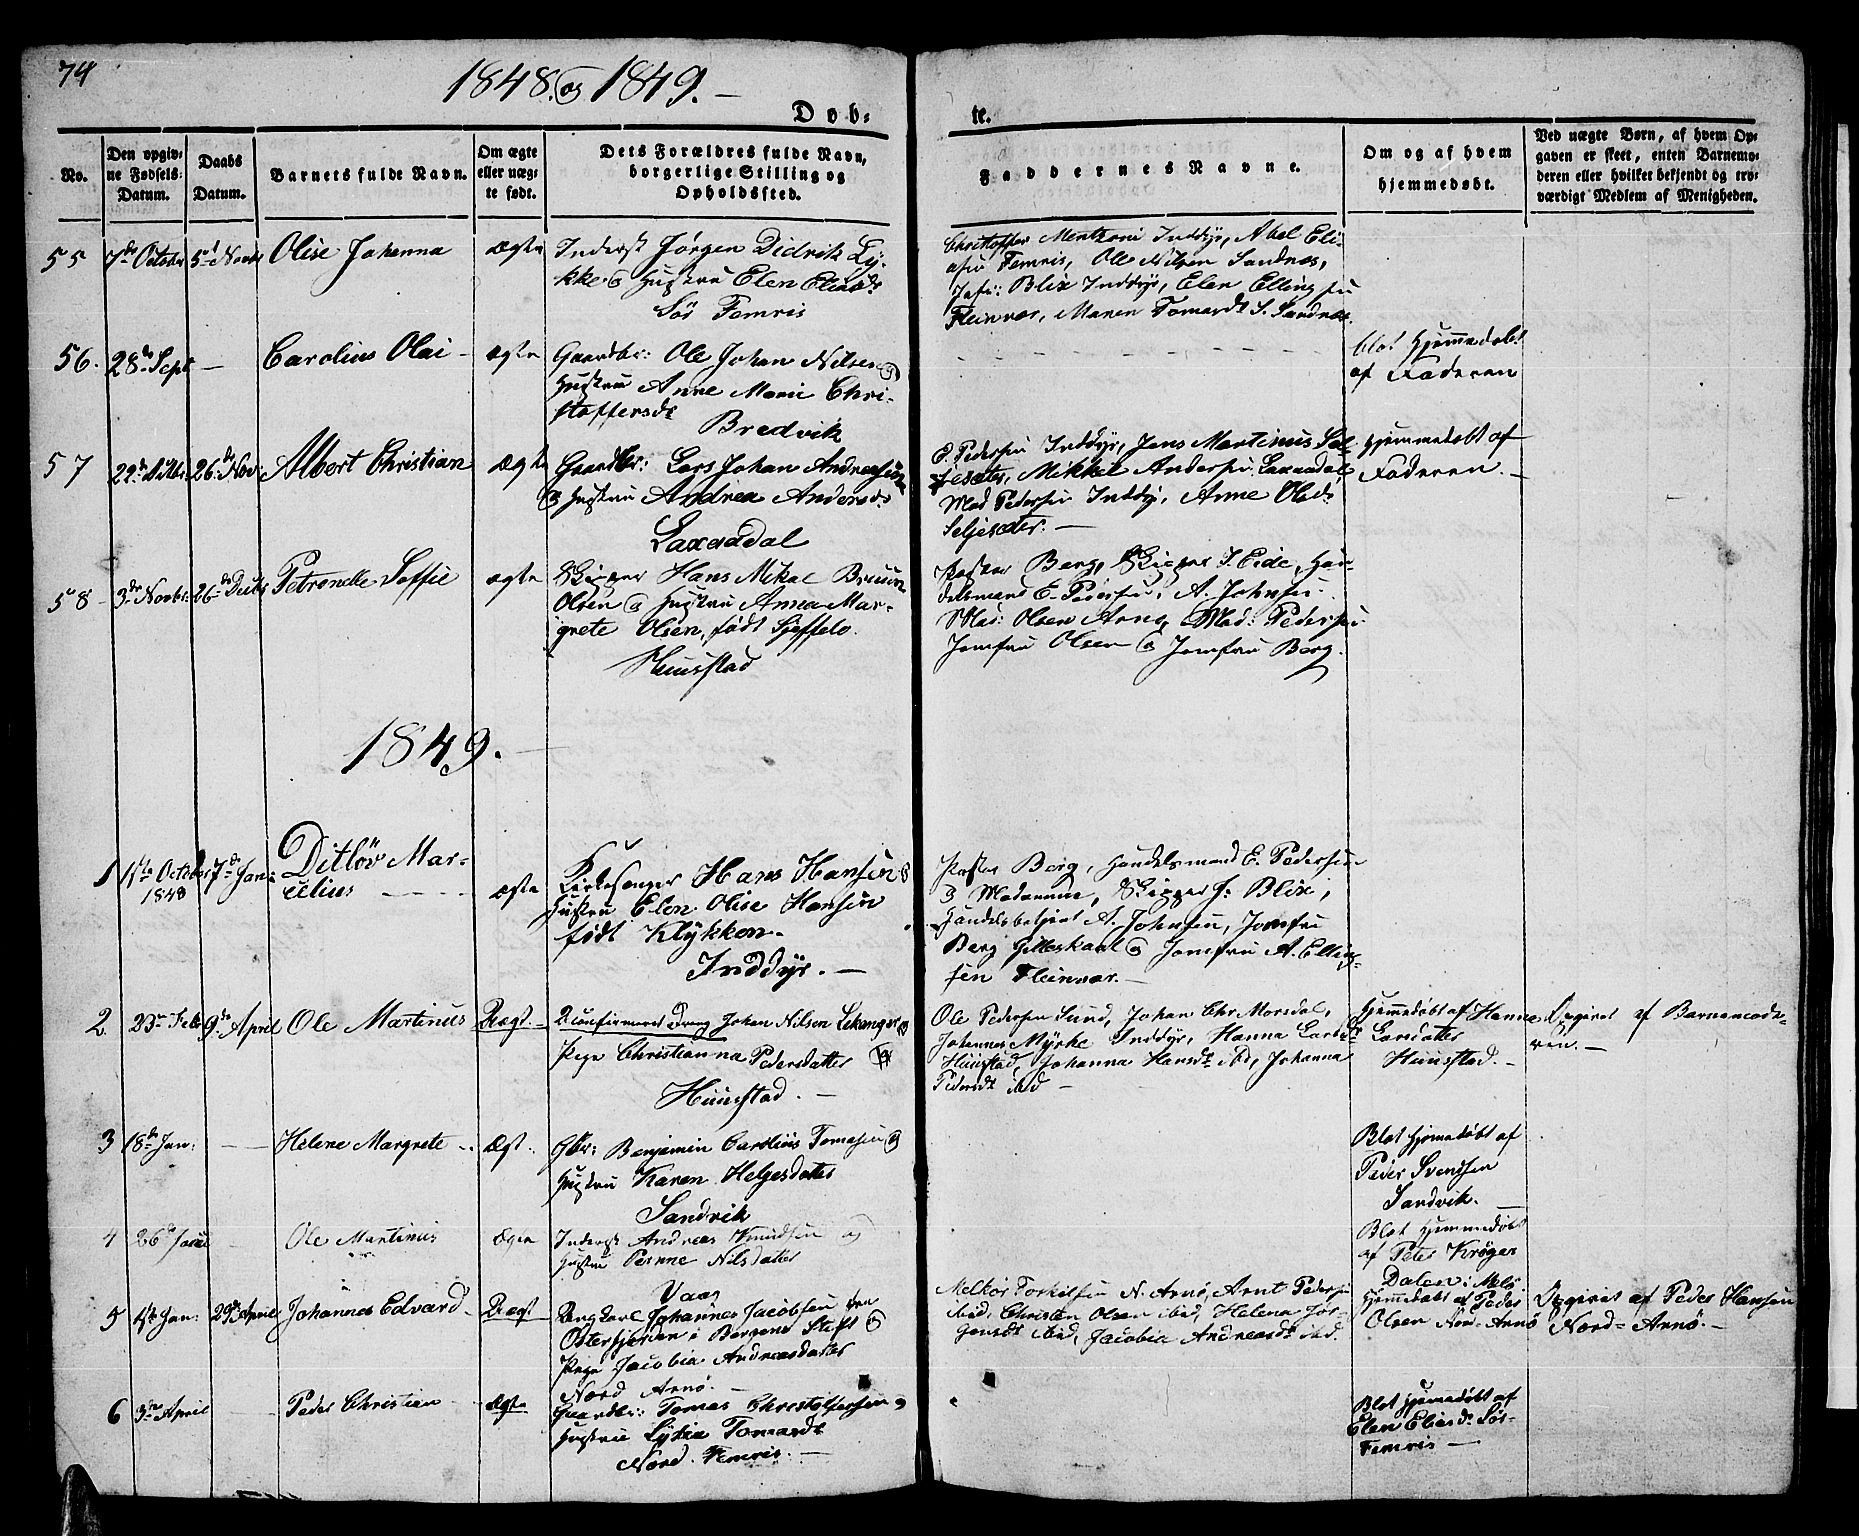 74
1848 og 1849. —
Døb-
te.
No.
Den opgiv-
ne Fødsels-
Datum.
Daabs
Datum.
Barnets fulde Navn.
Om ægte
eller uæg-
te født.
Dets Forældres fulde Navn,
borgerlige Stilling og
Opholdssted.
Faddernes Navne.
Om og af hvem
hjemmedøbt.
Ved uægte Børn, af hvem Op-
gaven er skeet, enten Barnemo-
deren eller hvilket bekjendt og tro-
værdigt Medlem af Menigheden.
55
7de October
5te Novbr
Olise Johanna
ægte
Inderst Jørgen Didrik Ly-
kke og Hustru Elen Eliasd:
Sør Femris
Christopher Mentzoni Inddyr, Abel Eli-
asen Femris, Ole Nilsen Sandnes,
Jfr: Blix Inddyr, Elen Ellingsen
Fleinvær, Maren Tomasdt S. Sandnes.
56.
28de Sept
—
Carolius Olai —
ægte
Gaardbr: Ole Johan Nilsen og
Hustru Anne Marie Chri-
stoffersdt
Bredvik
blot Hjemmedøbt
af Faderen
57
22de Octbr.
26de Nov:
Albert Christian
ægte
Gaardbr: Lars Johan Andreassen
og Hustru Andrea Andersdt
Laxaadal
E. Pedersen Inddyr, Jens Martinus Sel-
jesæter, Mikkel Andersen Laxaadal,
Mad Pedersen Inddyr, Anne Olsdt
Seljesæter. —
Hjemmedøbt af
Faderen. —
58 -
3de Novbr.
26de Decbr
Petronelle Soffie
ægte
Skipper Hans Mikal Bruun
Olsen og Hustru Anna Mar-
grete Olsen, født Sjeffelo.
Huusstad
Pastor Berg, Skipper J. Eide, Han-
delsmand E. Pedersen, A. Johnsen.
Mad: Olsen Arnø, Mad: Pedersen
Jomfru Olsen og Jomfru Berg.
1849. —
1
1ste October
1848
7de Jan:
Ditløv Mar-
celius - - - -
ægte
Kirkesanger Hans Hansen &
Hustru Elen Olise Hansen
født Klykken.
Inddyr. —
Pastor Berg, Handelsmand E. Pedersen
og Madamme, Skipper J: Blix,
Handelsbetjent A. Johnsen, Jomfru
Berg Gilleskaal og Jomfru A. Elling-
sen Fleinvær. —
2.
23de Febr
9de April
Ole Martinus
Uægt.
Uconfirmeret Dreng Johan Nilsen Lekanger og
Pige Christianna Pedersdatter
Huusstad. —
Ole Pedersen Sund, Johan Chr Morsdal,
Johannes Myrke Inddyr, Hanna Larsdt
Huusstad, Johanna Hansdt ibid, Johanna
Pedersdt ibid —
Hjemmedøbt af Hanna
Larsdatter
Huusstad. —
Opgivet af Barnemode-
ren. —
3
18de Jan:
—
Helene Margrete - .
Ægt.
Gbr: Benjamin Carolius Tomasen og
Hustru Karen Helgesdatter
Sandvik
Blot Hjemmedøbt af
Peder Svendsen
Sandvik.
4
26de Janu
—
Ole Martinus
Ægte
Inderst Andreas Knudsen og
Hustru Pernne Nilsdatter
Vaag
Blot Hjemmedøbt
af Peter Krøger
Dalen i Melø
5
4de Jan:
29de April
Johannes Edvard -
Uægt
Ungkarl Johannes Jacobsen fra
Osterfjorden i Bergens Stift og
Pige Jacobia Andreasdatter
Nord Arnø. —
Melkor Torkilsen N. Arnø, Arnt Pedersen
ibid, Christen Olsen ibid, Helena Jør-
gensdt ibid, Jacobia Andreasdt ibid.
Hjemmedøbt af Peder
Olsen Nord-Arnø
Opgivet af Peder Hansen
Nord-Arnø. —
6
3de April
—
Peder Christian —
Ægte
Gaardbr: Tomas Christoffersen og
Hustru Lydia Tomasdt
Nord. Femris. —
Blot Hjemmedøbt af
Elen Eliasdt Sør-
Femris —